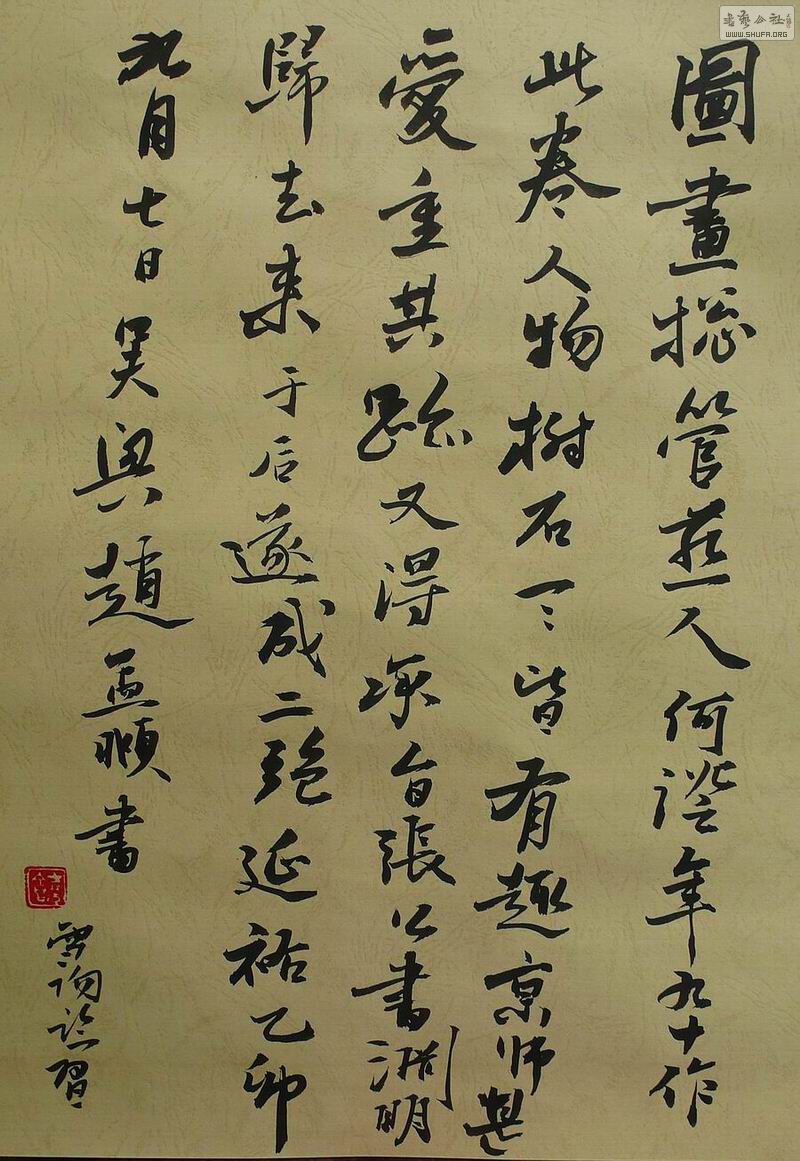 書藝公社
WWW.SHUFA.ORG
圖畫總管燕人何澄年九十作
此卷人物樹石一一皆有趣京師甚
愛重其跡又得承旨張公書淵明
歸去来于后遂成二絶延祐乙卯
九月七日吴興趙孟頫書
臨習